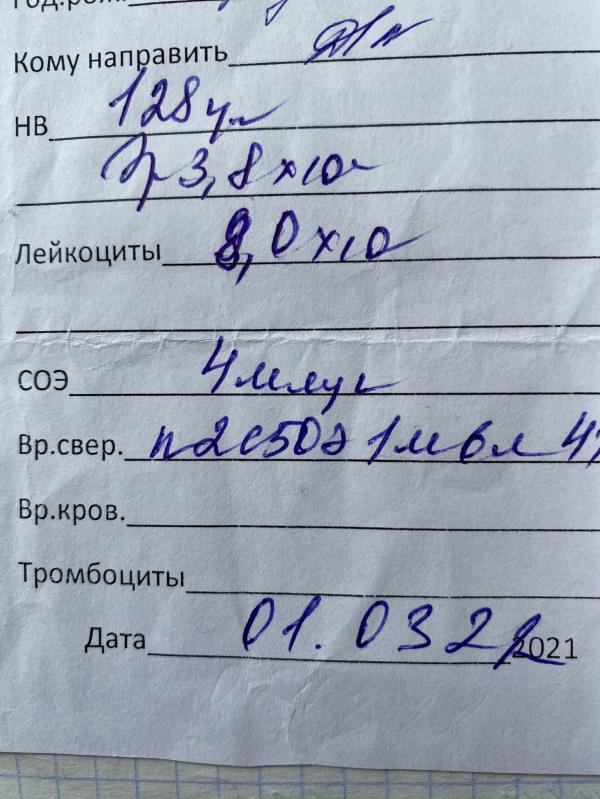 Год.рож.
Кому направить
НВ 128 г/л
Эр 3,8×10
Лейкоциты 8,0×10
СОЭ 4 мм/ч
Вр.свер. п2с50э1м6л41
Вр.кров.
Тромбоциты
Дата 01.0322 2021